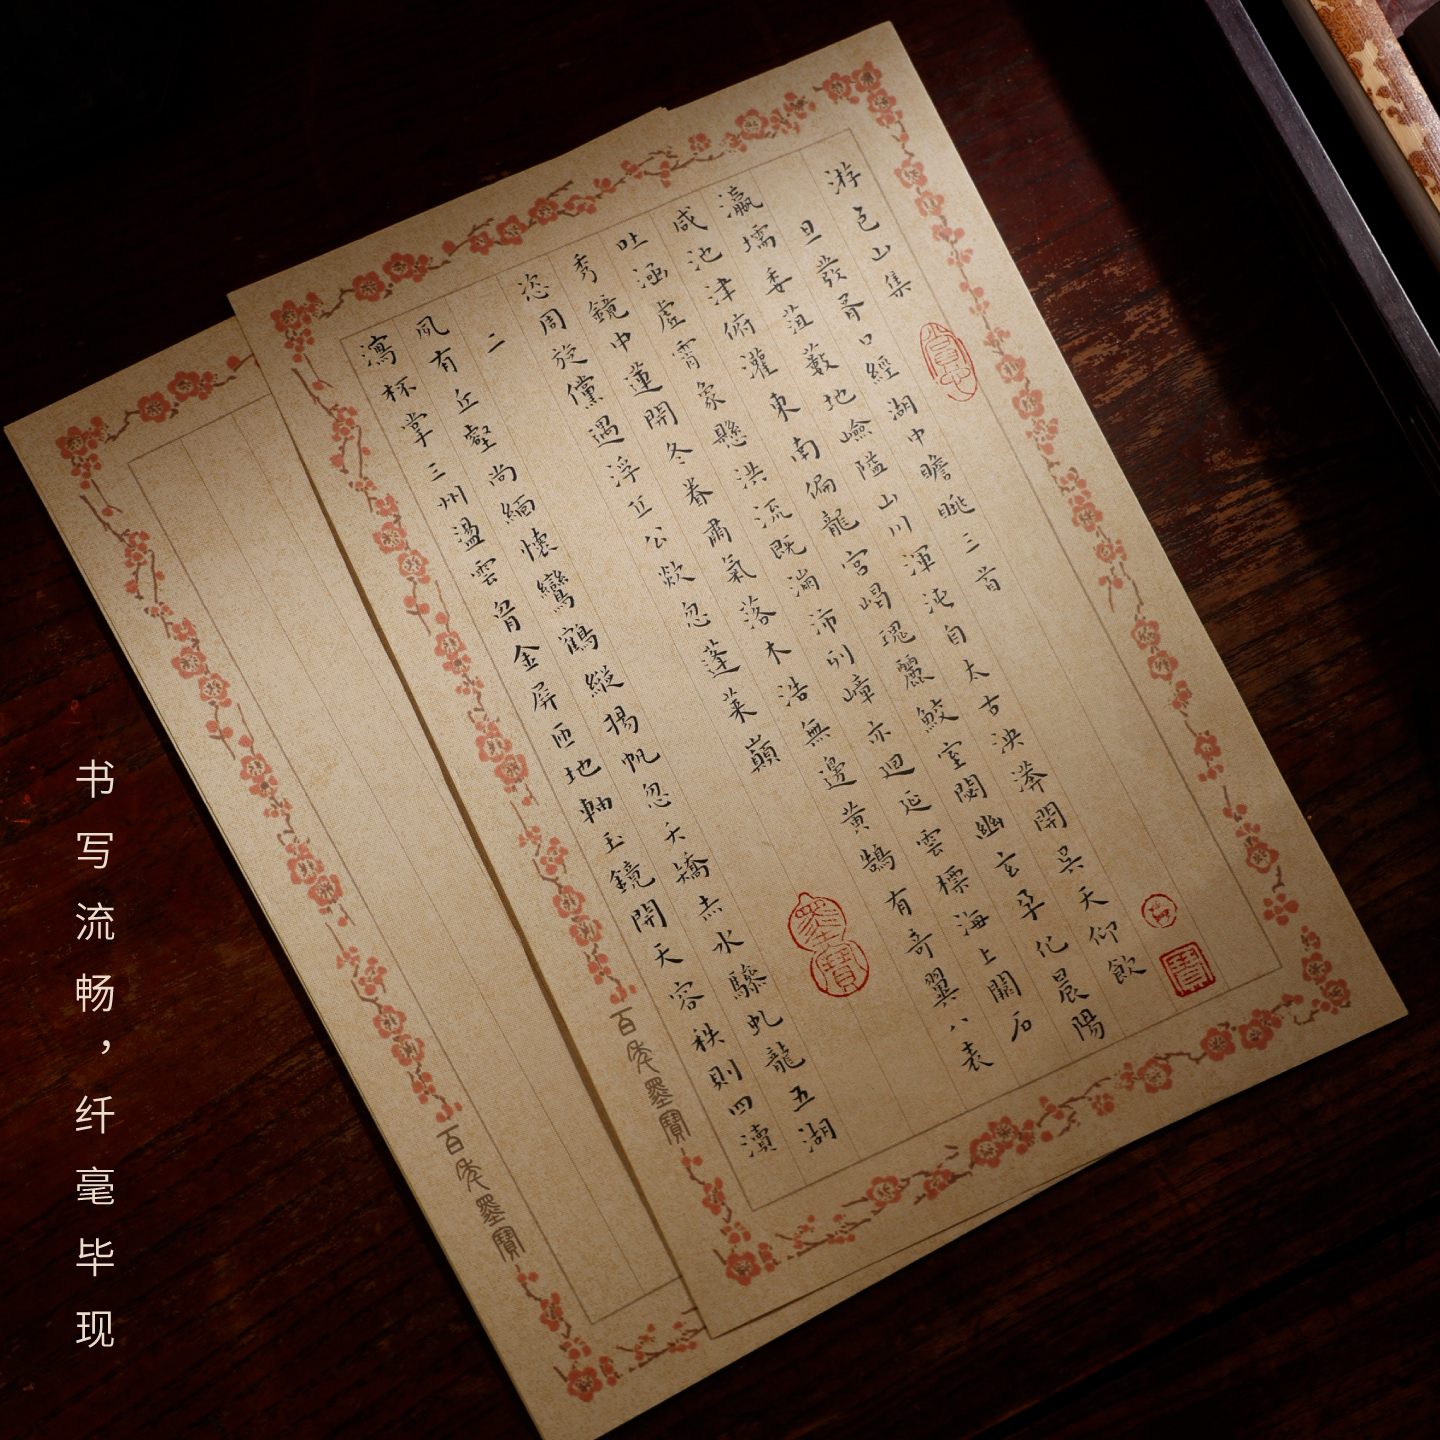 游包山集
旦發胥口經湖中瞻眺三首
瀛壖委菹藪地嶮隘山川渾沌自太古泱漭開吳天仰飲
咸池津俯灌東南偏龍宮嵑瑰麗鮫室閟幽玄孕化晨陽
吐涵虛霄象懸洪流既湍沛列嶂亦迴延雲標海上關石
秀鏡中蓮開冬眷肅氣落木浩無邊黃鵠有奇翼八表
恣周旋儻遇浮丘公欻忽蓬萊巔
二
夙有丘壑尚緬懷鸞鶴縱揚帆忽夭矯赤水驂虬龍五湖
瀉杯掌三州盪雲金屏匝地軸玉鏡開天容秩則四瀆
墨寶
寶
百年墨寶
百年墨寶
书写流畅，纤毫毕现